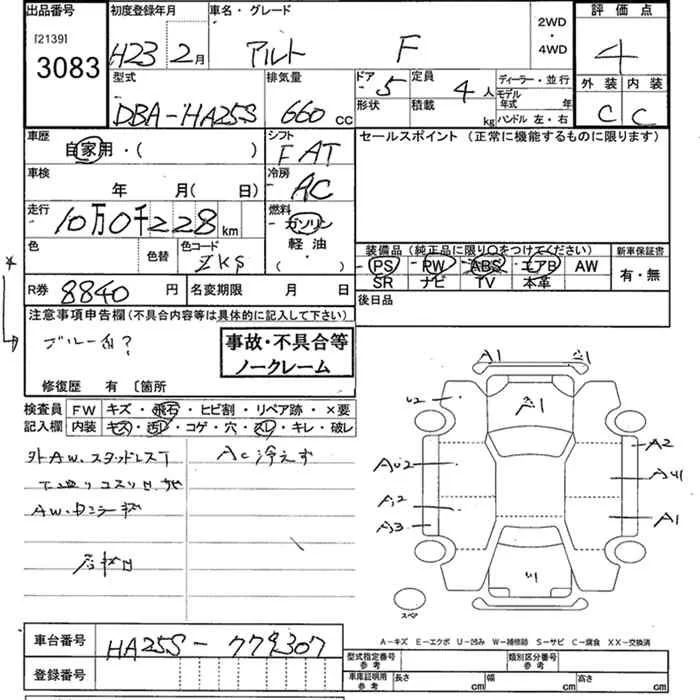 出品番号 初度登録年月 車名・グレード 2WD・4WD 評価点
[2139]
3083
H23 2月 アルト F 4
型式 排気量 ドア 5 定員 4 人 ディーラー・並行 外装 内装
DBA-HA25S 660 cc 形状 積載 kg モデル年式 年 C C
ハンドル 左・右
車歴 自家用・( ) シフト FAT セールスポイント (正常に機能するものに限ります)
車検 年 月( 日) 冷房 AC
走行 10万0千228km 燃料 ガソリン
軽油
( )
色 色替 色コード ZKS
装備品 (純正品に限り○をつけてください) 新車保証書
PS PW ABS エアB AW 有・無
SR ナビ TV 本革
R券 8840 円 名変期限 月 日 後日品
注意事項申告欄(不具合内容等は具体的に記入して下さい)
事故・不具合等
ノークレーム
修復歴 有 〔箇所
検査員 FW キズ・飛石・ヒビ割・リペア跡・×要
記入欄 内装 キズ・汚レ・コゲ・穴・スレ・キレ・破レ
AC冷えず
A1
U2
A2
AU2
A1
A3
スペア
A-キズ E-エクボ U-凹み W-補修跡 S-サビ C-腐食 XX-交換済
車台番号 HA25S-779307
登録番号
型式指定番号 参考 類別区分番号 参考
車庫証明用 参考 長さ cm 幅 cm 高さ cm